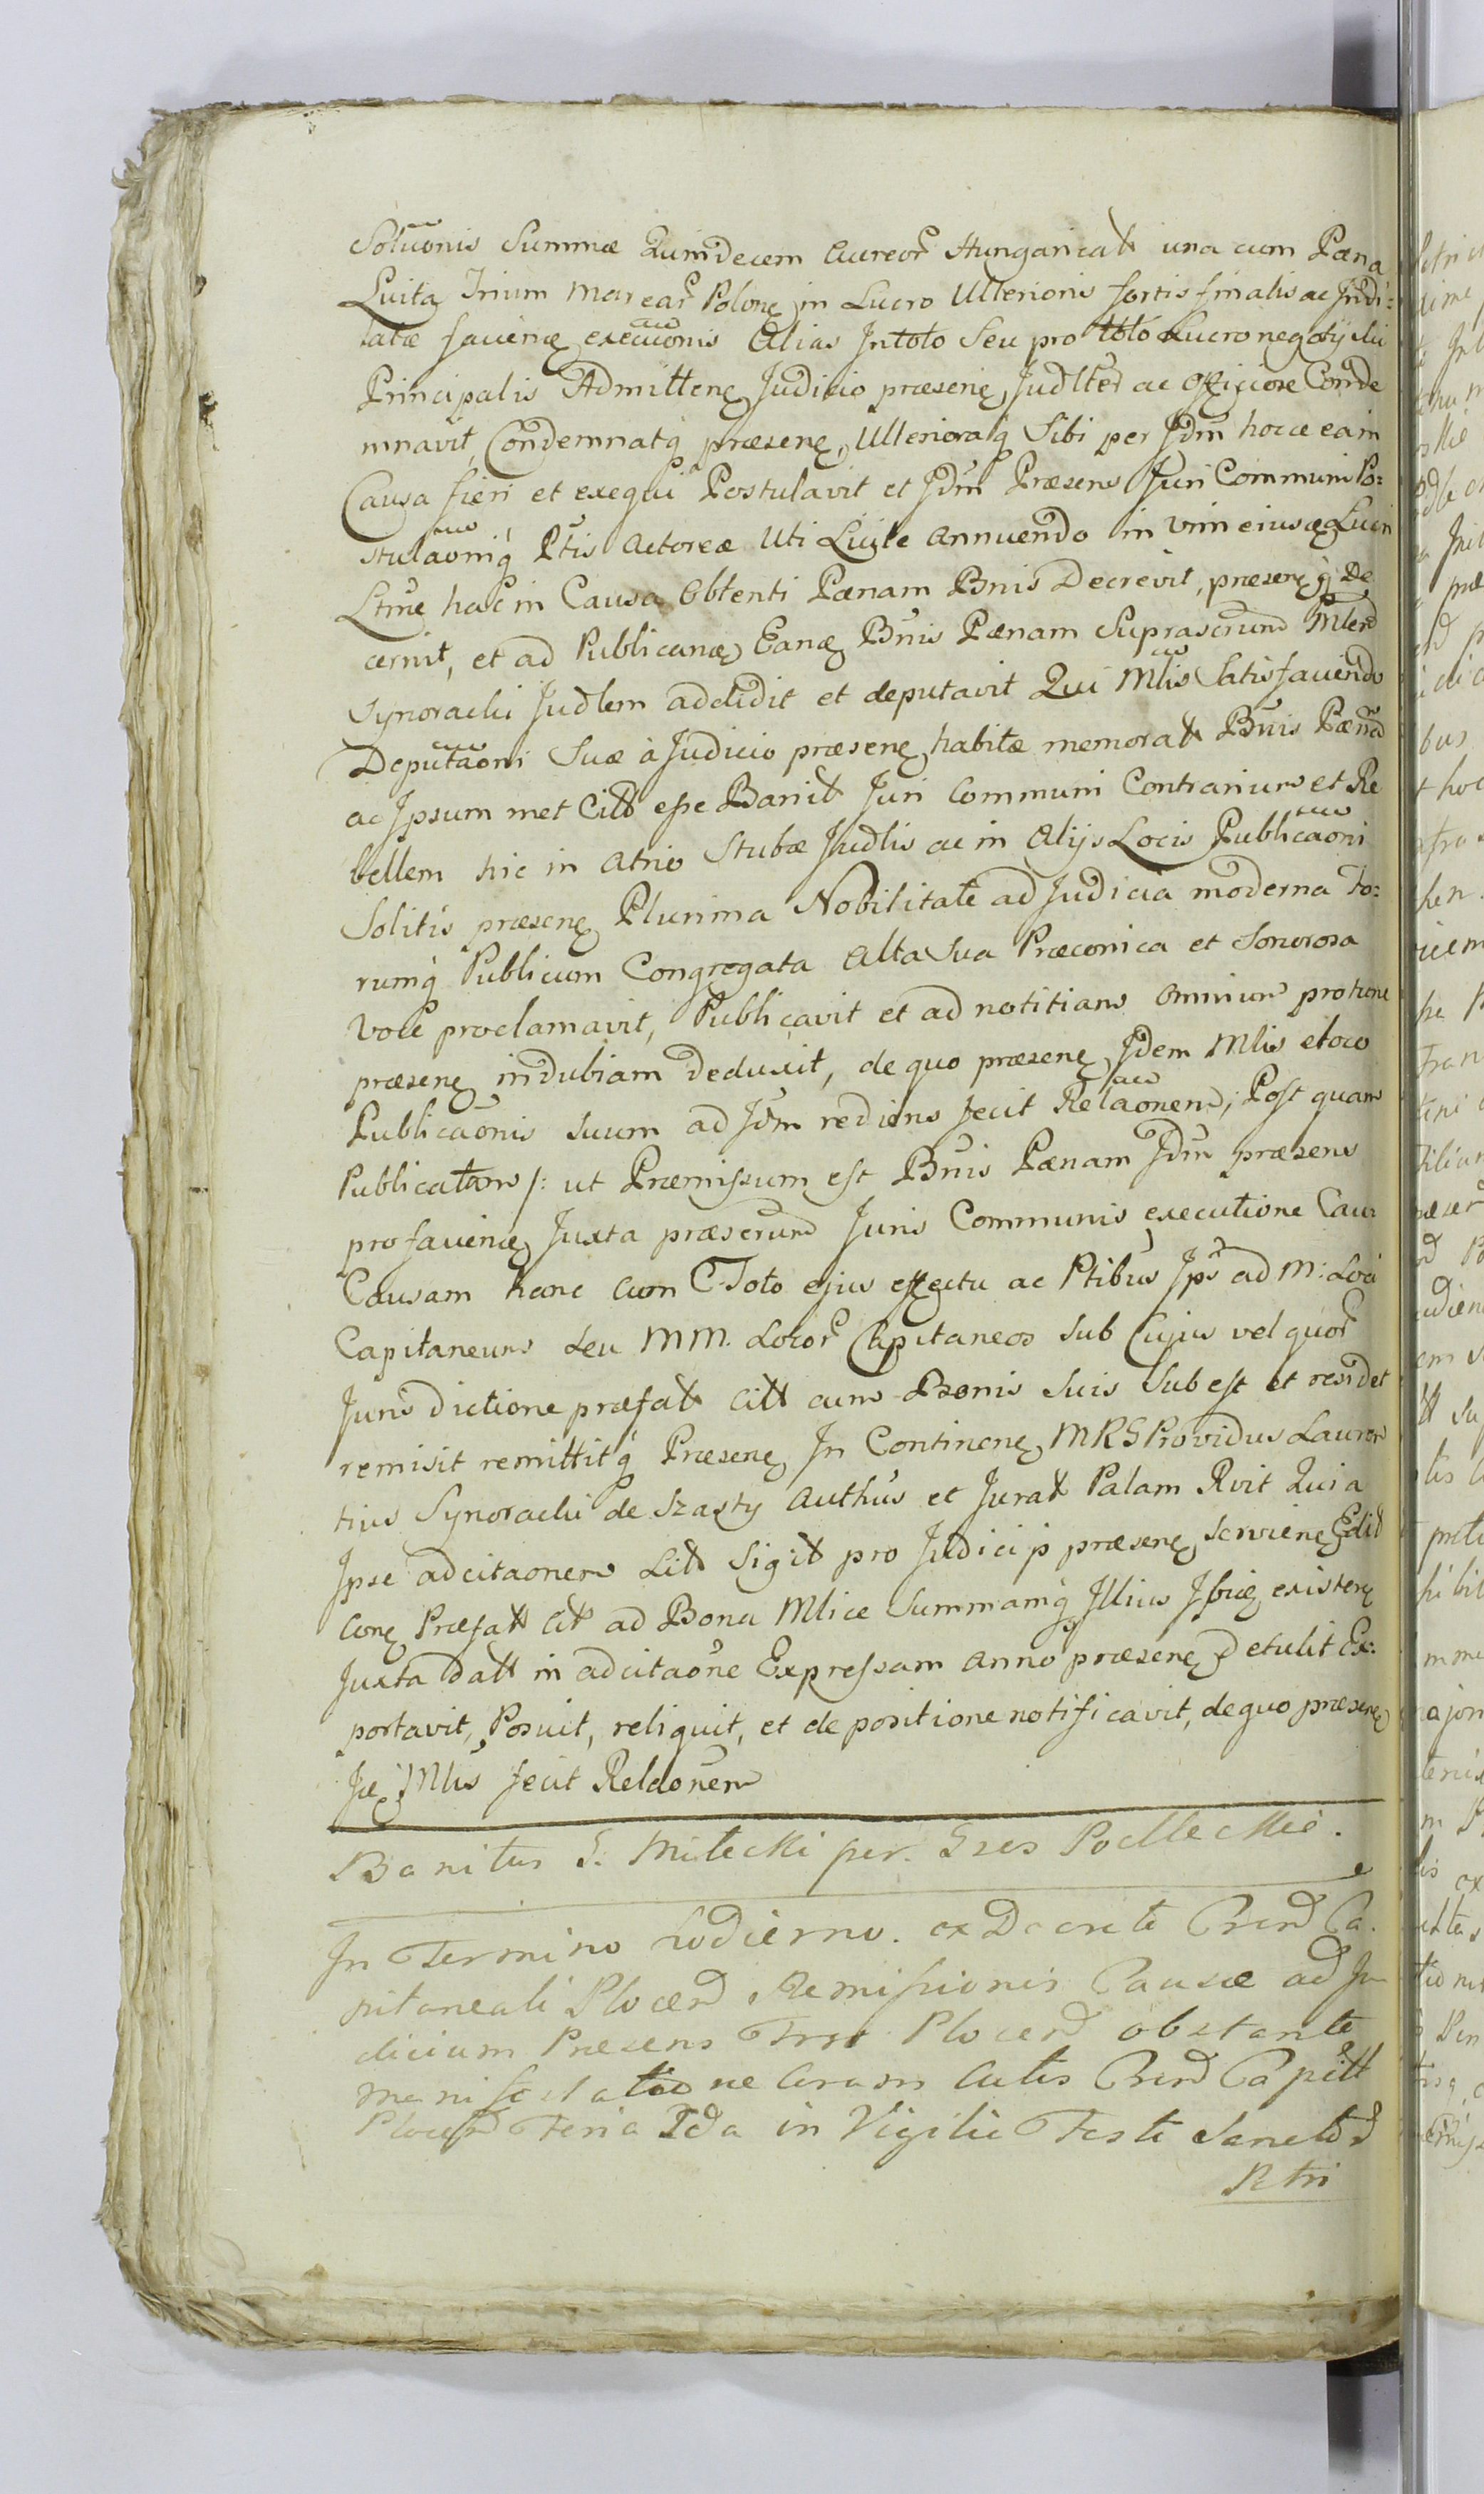 Solůonis Summæ Quindecem Aureor Hungaricał una cum Pæna
Luita Trium Marcar Polonę in Lucro Ulterioris fortis finalis ac Judi:
iatæ facienę execuonis Alias In toto Seu pro toto Lucro negotij
Principalis Admittenę Judicio præsenę, Judltер ac officiose Conde
mnavit, Condemnatq præsenę, Ulterioraq Sibi per Jdm hocce ea in
Causa fieri et exeqũi Postulavit et Jdm Præsens Juri Communi Po:
stulaoniq Ptis Actoreæ Uti Licitæ Annuendo in Vim eiusæ Lucri
Ltme hac in Causa Obtenti Pænam Bnis Decrevit, præsenę q De
cernit, et ad Publicanæ Eanæ Bnis Pænam Suprascrum Mlem
Synoracki Judlem addidit et deputavit Qui Mlis Satisfaciendo
Deputaoni Suæ à Judicio præsenę habitæ memorał Bnis Pænã
ac Ipsum met Citt esse Banit Juri Communi Contrarium et Re
bellem hic in Atrio Stubæ Judlis ac in Alijs Locis Publicaoni
Solitis præsenę Plurima Nobilitate ad Judicia moderna Fo:
rumq Publicum Congregata Alta Sua Præconica et Sonorosa
Voce proclamavit, Publicavit et ad notitiam Omnium protune
præsenę indubiam deduxit, de quo præsenę Jdem Mlis eloco
Publicaonis suum ad Jdm rediens fecit Relaonem; Post quam
Publicatam /: ut Præmissum est Bnis Pænam Jdm præsens
pro facienę Juxta præscrum Juris Communis executione Cau:
Causam hanc cum Toto ejus effectu ac Ptibus Ips ad M: Loci
Capitaneum seu MM. Locor Capitaneos sub Cujus vel quor
Jurisdictione præfał Citt cum Bonis Suis Subest et residet
remisit remittitq Præsenę In Continenę MRS Providus Lauren
tius Synoracki de Szasty Authus et Jurał Palam Rvit Quia
Ipse adcitaonem Litt Sigił pro Judicijs præsenę servienę Edit
Conę Præfał Cił ad Bona Mlice Summamq Illius Ibiæ existenę
Juxta Datt in adcitaone Expressam Anno præsenę detulit Ex:
portavit, Posuit, reliquit, et de positione notificavit, de quo præsenę
Jæ Mlis fecit Relaonem
Banitus G. Milecki per. Gres
In Termino hodierno. ex Decreto Cren Ca.
pitaneali Plocen Remissionis Causæ ad Ju
dicium Præsens Plocen obstante
manifestatione Coram Actis Cren Capitt
Plocen Feria 2da in Vigilie Festi Sanctor
Petri